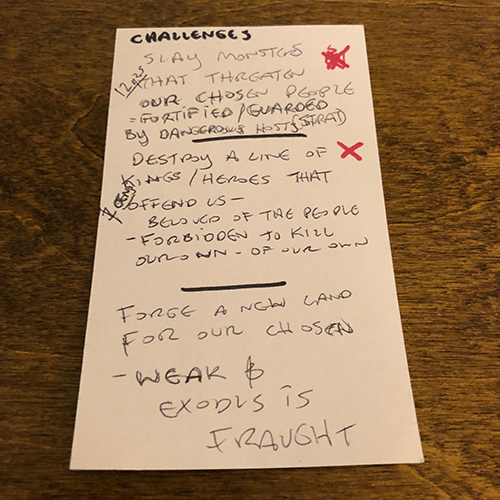 CHALLENGES
SLAY MONSTERS
THAT THREATEN
OUR CHOSEN PEOPLE
- FORTIFIED/GUARDED
BY DANGEROUS HOSTS (STRAT)
DESTROY A LINE OF
KINGS/HEROES THAT
OFFEND US -
BELOVED OF THE PEOPLE
- FORBIDDEN TO KILL
OUR OWN - OF OUR OWN
FORGE A NEW LAND
FOR OUR CHOSEN
- WEAK &
EXODUS IS
FRAUGHT